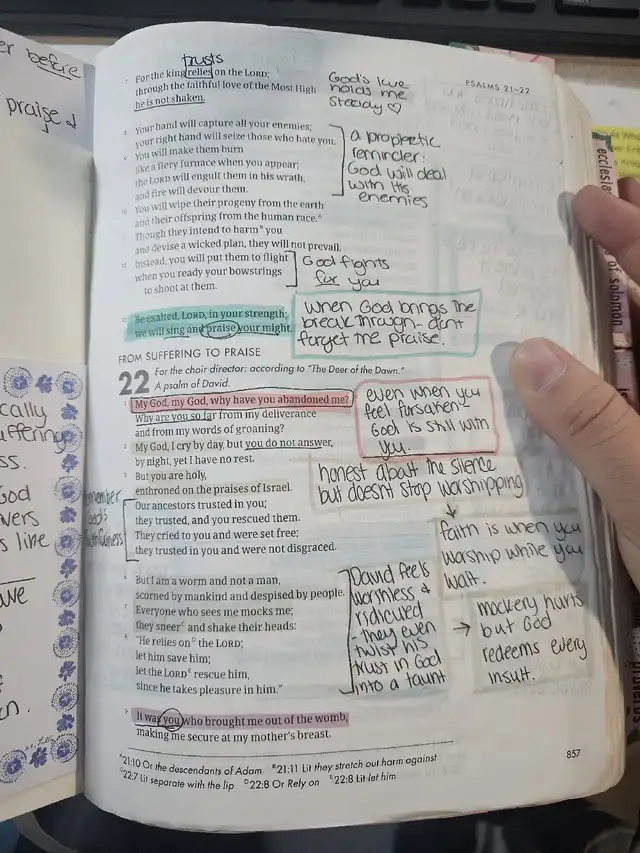 er before
praise &
cally
uffering
ss.
God
vers
s like
ave
n.
trusts
PSALMS 21–22
7 For the king relies on the LORD;
through the faithful love of the Most High
he is not shaken.
God's love
holds me
steady ♡
8 Your hand will capture all your enemies;
your right hand will seize those who hate you.
9 You will make them burn
like a fiery furnace when you appear;
the LORD will engulf them in his wrath,
and fire will devour them.
a prophetic
reminder:
God will deal
with His
enemies
10 You will wipe their progeny from the earth
and their offspring from the human race.A
11 Though they intend to harmB you
and devise a wicked plan, they will not prevail.
12 Instead, you will put them to flight
when you ready your bowstrings
to shoot at them.
God fights
for you
13 Be exalted, LORD, in your strength;
we will sing and praise your might.
When God brings the
break through – dont
forget the praise.
FROM SUFFERING TO PRAISE
22 For the choir director: according to "The Deer of the Dawn."
A psalm of David.
1 My God, my God, why have you abandoned me?
Why are you so far from my deliverance
and from my words of groaning?
2 My God, I cry by day, but you do not answer,
by night, yet I have no rest.
3 But you are holy,
enthroned on the praises of Israel.
even when you
feel forsaken –
God is still with
you.
honest about the silence
but doesnt stop worshipping
4 Our ancestors trusted in you;
they trusted, and you rescued them.
5 They cried to you and were set free;
they trusted in you and were not disgraced.
faith is when you
worship while you
wait.
6 But I am a worm and not a man,
scorned by mankind and despised by people.
7 Everyone who sees me mocks me;
they sneerC and shake their heads:
8 "He relies onD the LORD;
let him save him;
let the LORDE rescue him,
since he takes pleasure in him."
David feels
worthless &
ridiculed
- they even
twist his
trust in God
into a taunt
→ mockery hurts
but God
redeems every
insult.
9 It was you who brought me out of the womb,
making me secure at my mother's breast.
A21:10 Or the descendants of Adam B21:11 Lit they stretch out harm against
C22:7 Lit separate with the lip D22:8 Or Rely on E22:8 Lit let him
857
of solomon